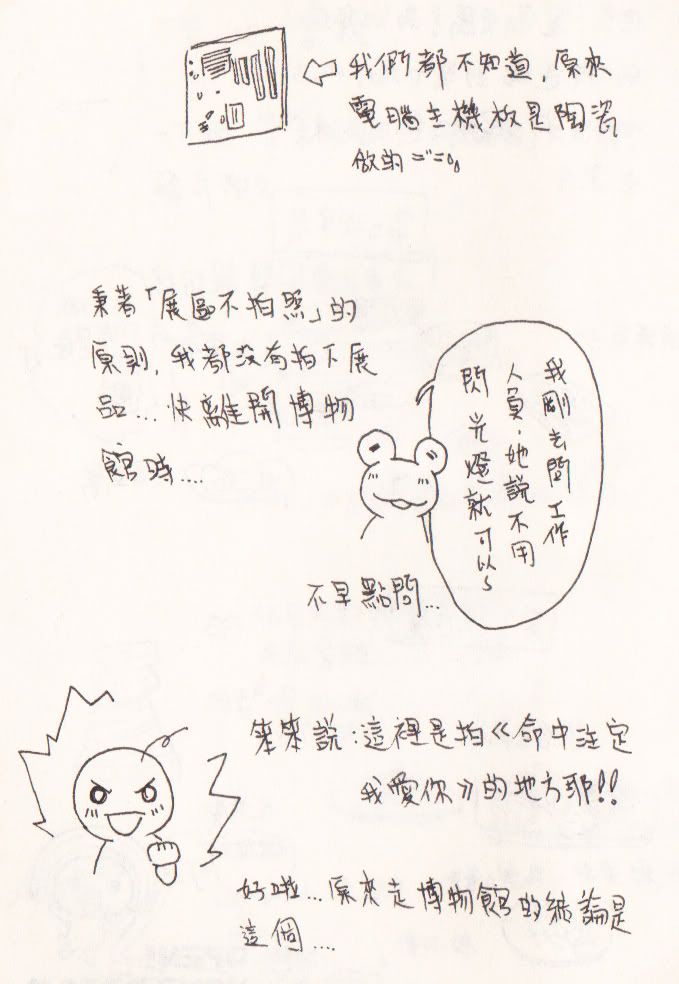 我們都不知道,原來
電腦主機板是陶瓷
做的 ="=。。
秉著「展區不拍照」的
原則,我都沒有拍下展
品...快離開博物
館時....
我剛去問工作
人員,她說不用
閃光燈就可以~
不早點問...
笨笨說:這裡是拍《命中注定
我愛你》的地方耶!!
好啦...原來走博物館的結論是
這個....